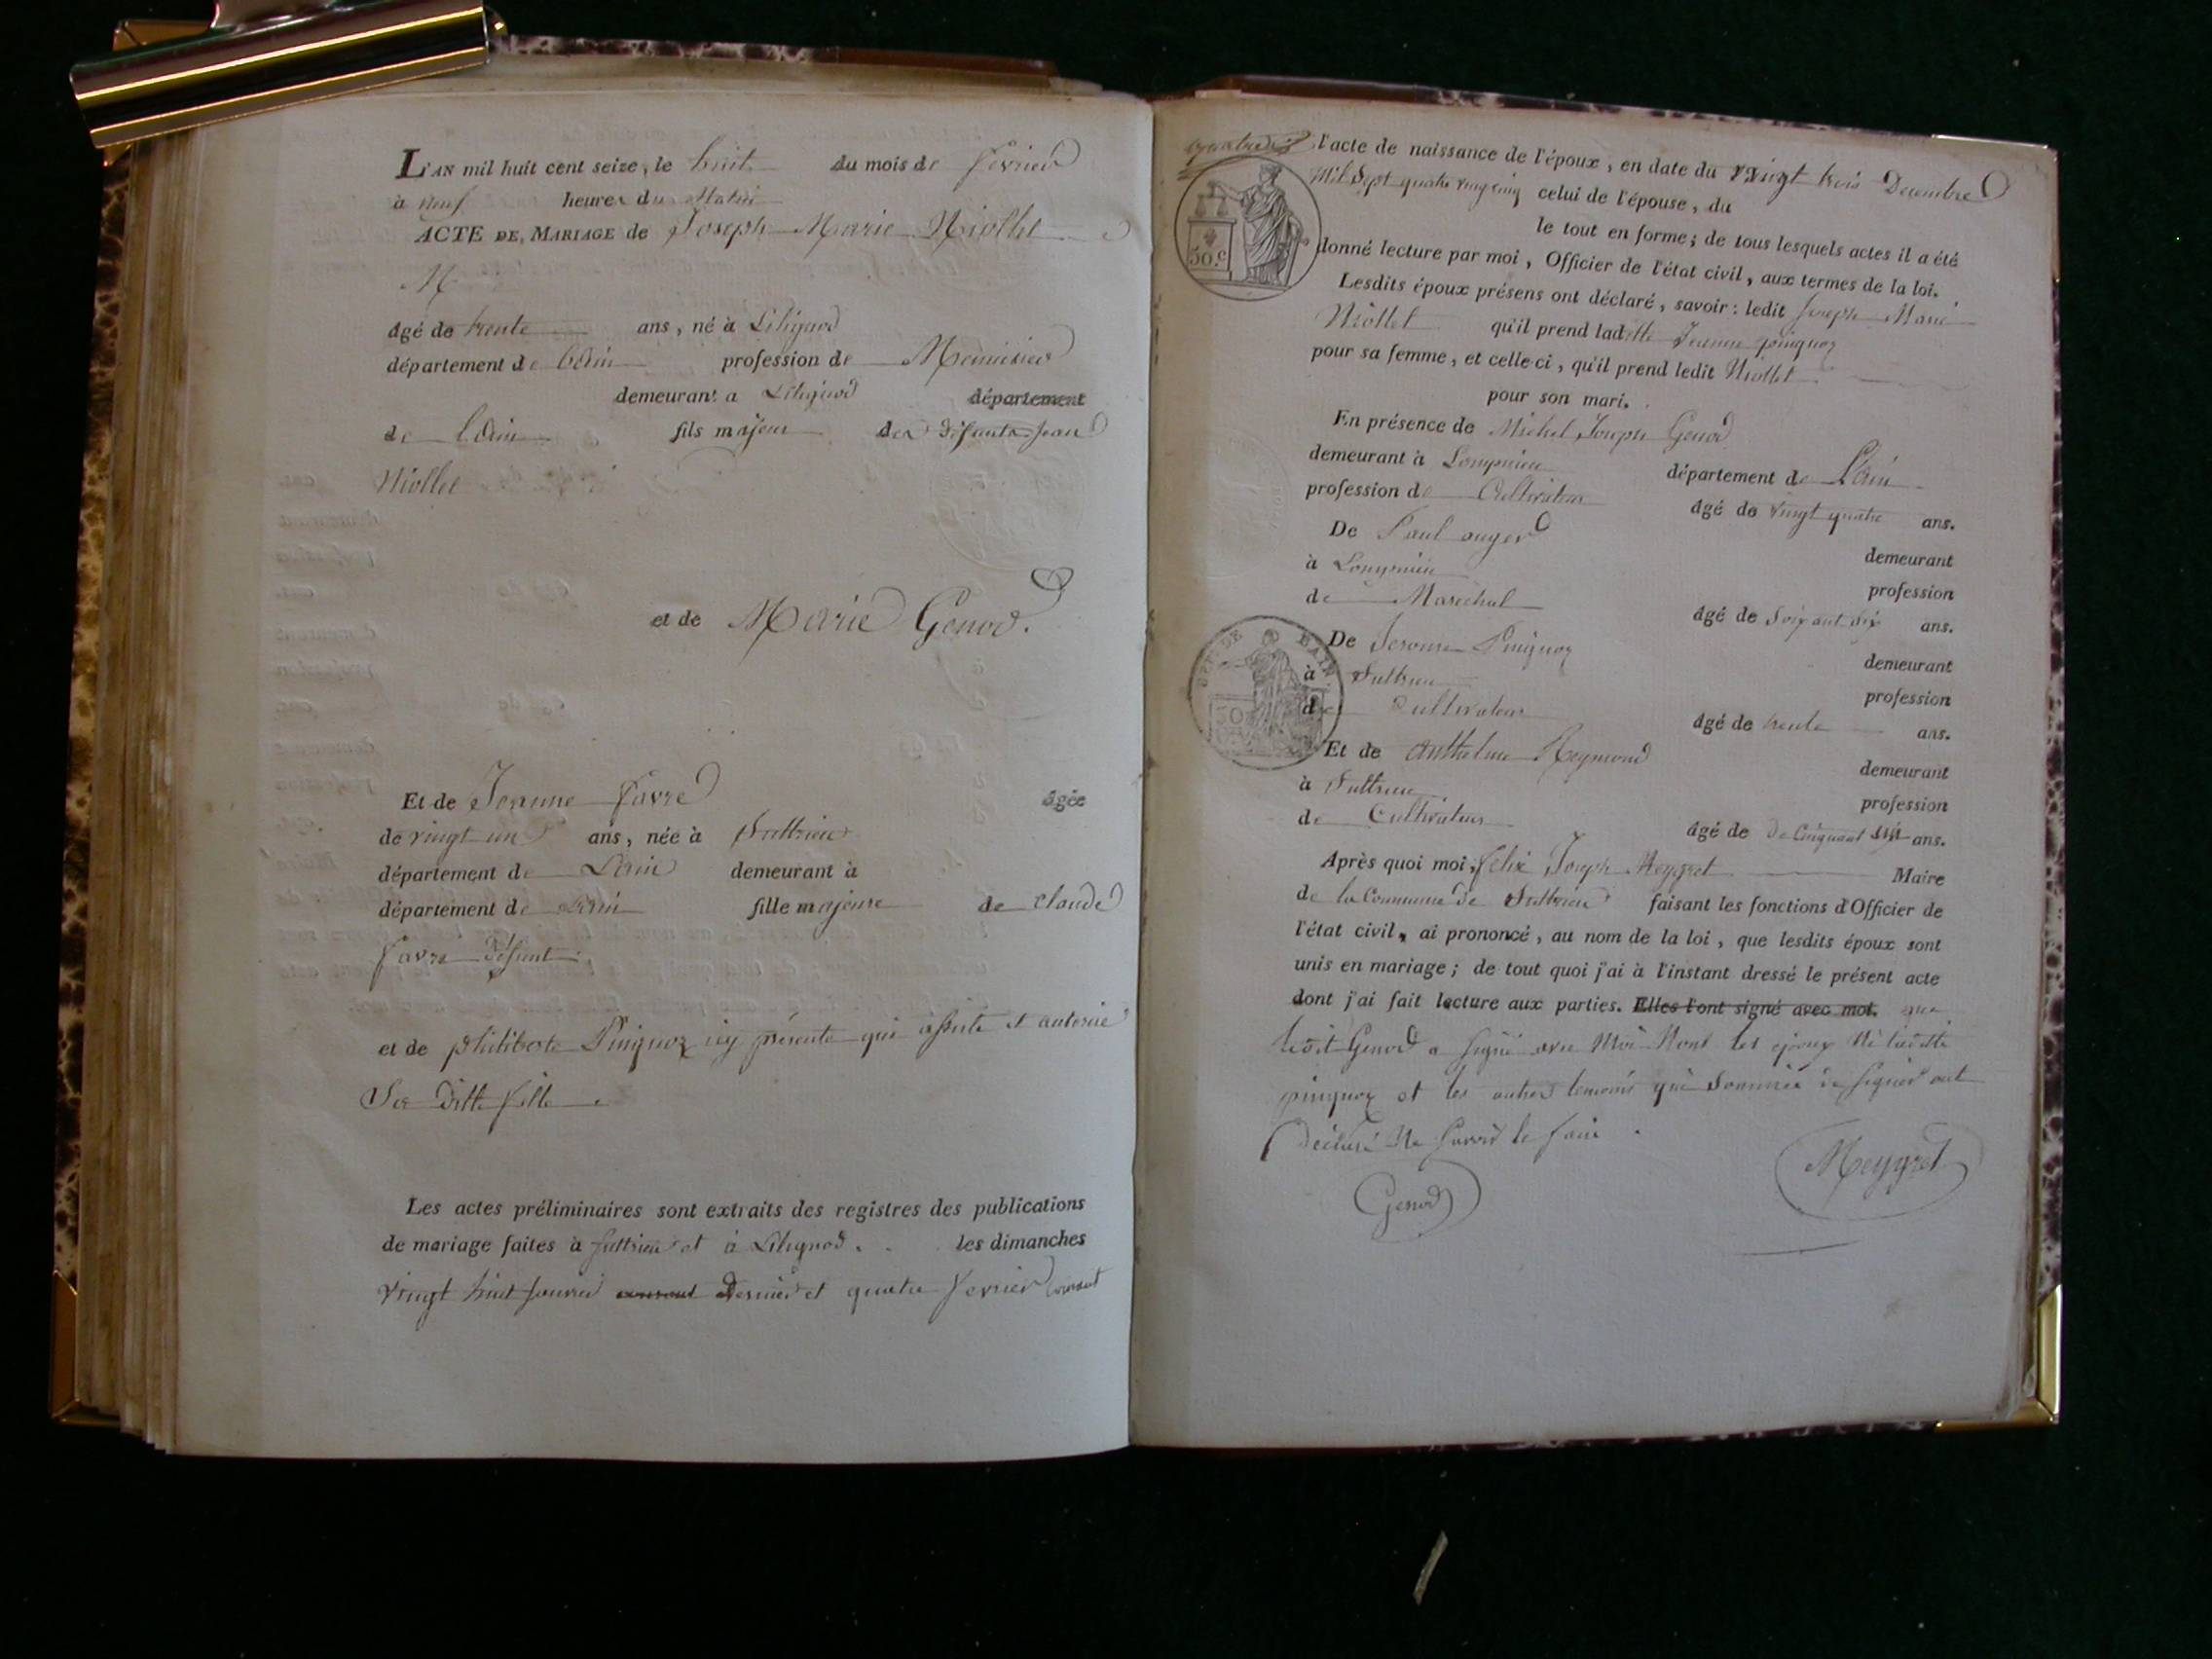 L'AN mil huit cent seize, le huit du mois de fevrier
à neuf heures du Matin
ACTE DE MARIAGE de Joseph Marie Niollet
N
âgé de trente ans, né à Lilignod
département de l'ain profession de Menuisier
demeurant a Lilignod département
de l'ain fils majeur des défunts Jean
Niollet
et de Marie Genod.
Et de Jeanne favre âgée
de vingt un ans, née à Sutrieu
département de L'ain demeurant à
département de L'ain fille majeure de claude
favre défunt
et de philiberte Pinguoz icy présente qui assiste et autorise
Sa ditte fille
Les actes préliminaires sont extraits des registres des publications
de mariage faites à Suttrieu et à Lilignod. les dimanches
vingt huit Janvier dernier et quatre fevrier courant
l'acte de naissance de l'époux, en date du vingt trois Decembre
Mil Sept quatre vingt cinq celui de l'épouse, du
le tout en forme; de tous lesquels actes il a été
donné lecture par moi, Officier de l'état civil, aux termes de la loi.
50.c
Lesdits époux présens ont déclaré, savoir: ledit Joseph Marie
Niollet qu'il prend laditte Jeanne pinguoz
pour sa femme, et celle-ci, qu'il prend ledit Niollet
pour son mari.
En présence de Michel Joseph Genod
demeurant à Lompnieu département de L'ain
profession de Cultivateur âgé de vingt quatre ans.
De Paul auger demeurant
à Lompnieu profession
de Marechal âgé de Soixant Six ans.
De Jerome Pinguoz demeurant
à Suttrieu profession
de Cultivateur âgé de trente ans.
Et de Anthelme Reymond demeurant
à Suttrieu profession
de Cultivateur âgé de de Cinquant Six ans.
Après quoi moi, félix Joseph Meygret Maire
de la Commune de Suttrieu faisant les fonctions d'Officier de
l'état civil, ai prononcé, au nom de la loi, que lesdits époux sont
unis en mariage; de tout quoi j'ai à l'instant dressé le présent acte
dont j'ai fait lecture aux parties. Elles l'ont signé avec moi. que
ledit Genod a signé avec Moi Non les époux Ni laditte
pinguoz et les autres temoins qui Sommés de signer ont
Déclaré Ne Savoir le faire.
Genod Meygret